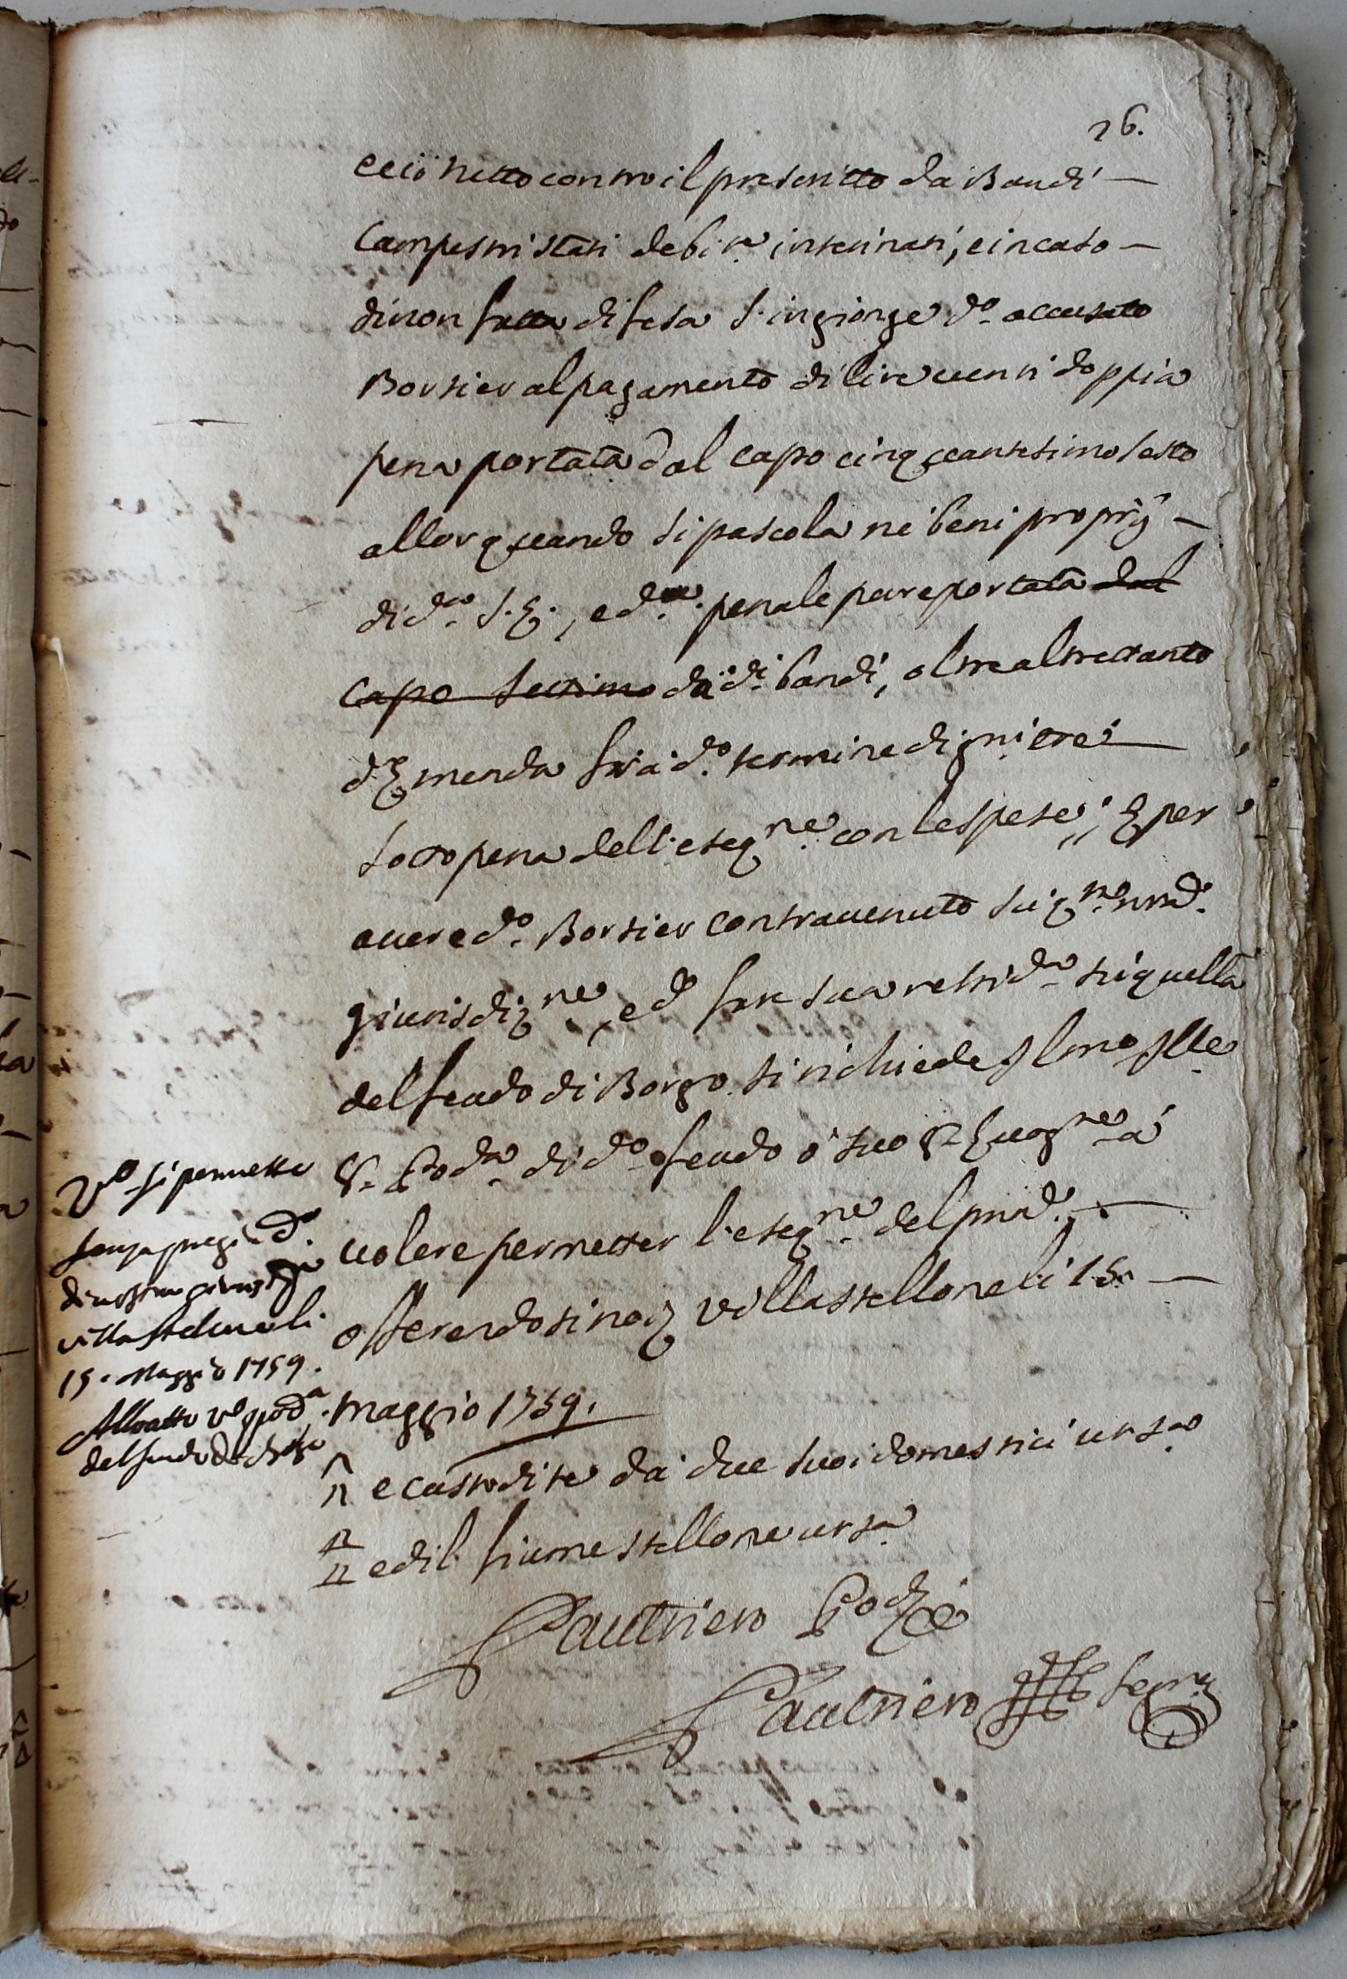 26.
e ciò netto contro il prescritto da Bandi
Campestri stati debit.e interinati, e in caso
di non fatta difesa s'ingionge d.o accusato
Borsier al pagamento di lire venti doppia
pena portata dal capo cinquantesimo sesto
allor quando si pascola ne' beni proprij
di d.a S. E., ed.a penale pure portata dal
capo settimo da di d.i bandi, oltre altrettanto
d'Emenda fra d.o termine di giorni tre
sotto pena dell'eseq.ne con le spese; E per
avere d.o Borsier contravenuto su q.ne nrad.
giurisdiz.ne, ed far sua resid.a su quella
del feudo di Borgo si richiede Ill.mo
S. Pod.à di d.o feudo ò suo
volere permetter l'eseq.ne del prnd.e,
offerendosi in Villastellone li 15
maggio 1759.
e custodite da due suoi domestici ursa
ed il fiume stellone ursa
Gautriero Pod.
Gautriero Segr.
V.o si permette
di nostra giurisd.ne
villa stelone li
15. Maggio 1759.
Alloatti v.e Pod.à
del feudo